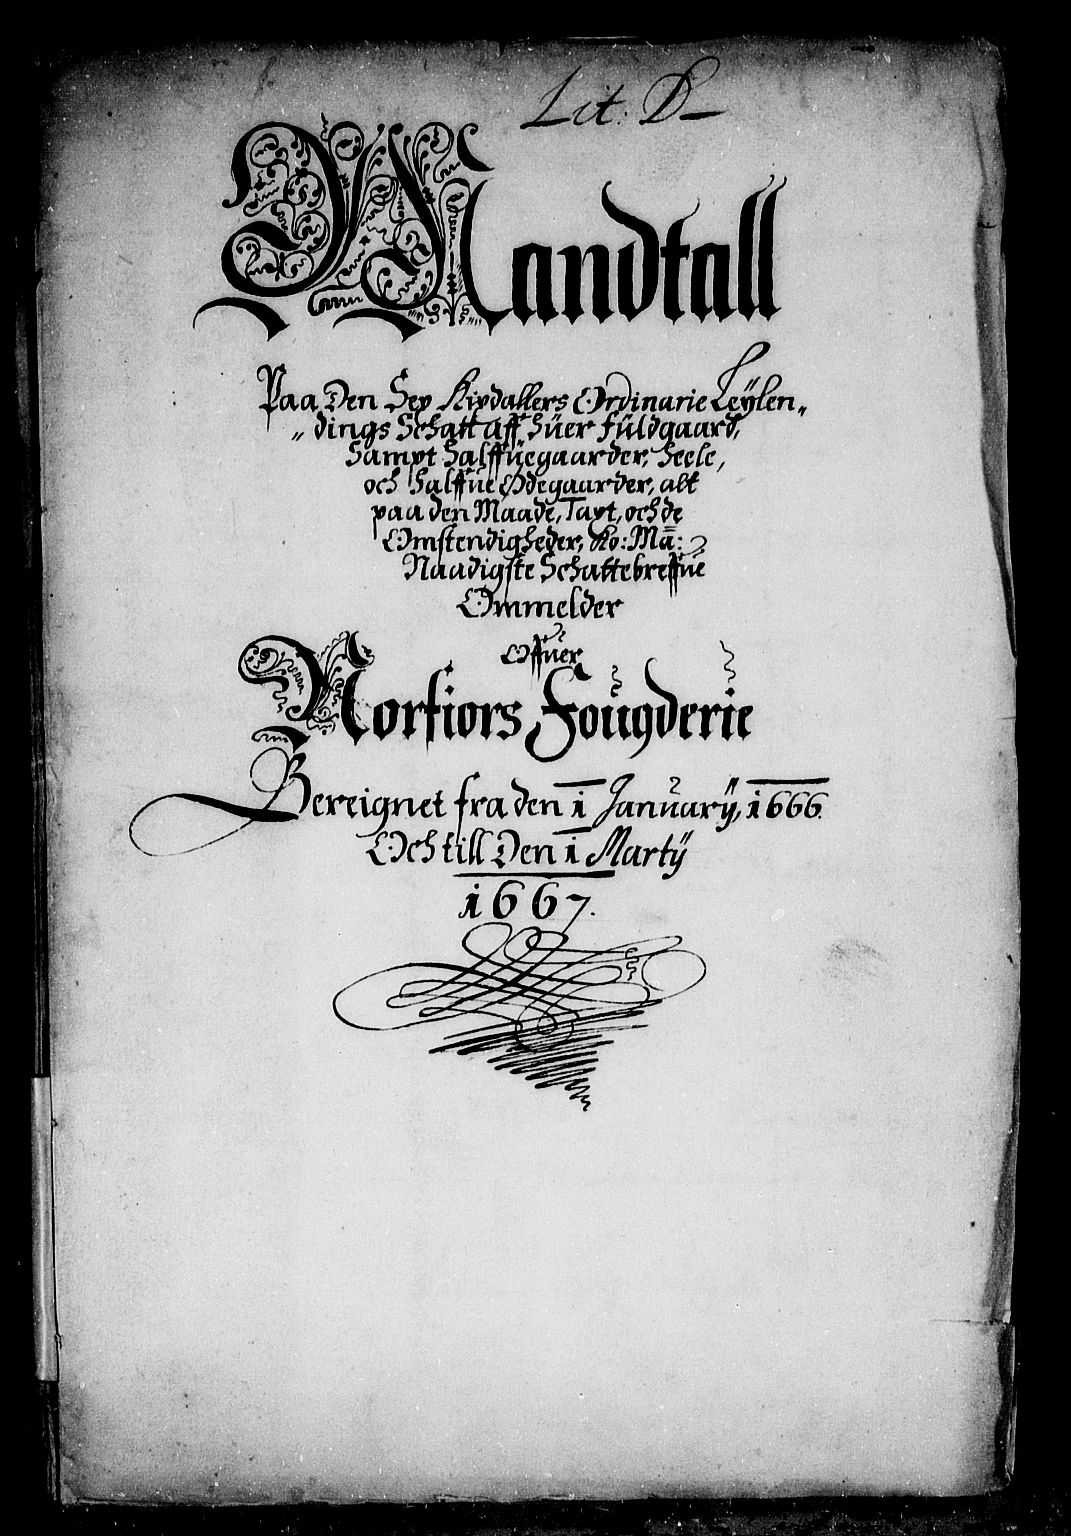 Lit: D
Mandtall
Paa Den Sex Rixdallers Ordinarie Leÿlen„
„dings Schatt aff huer fuldgaard,
Sampt halffuegaarder, heele,
och halffue Ødegaarder, alt
paa den Maade, Taxt, och de
Omstendigheder, Ko: Mā:
Naadigste Schattebreffue
Ommelder
Offuer
Norfiors Fougderie
Bereignet fra den 1 Januarÿ, 1666.
Och till Den 1 Martÿ
1667.